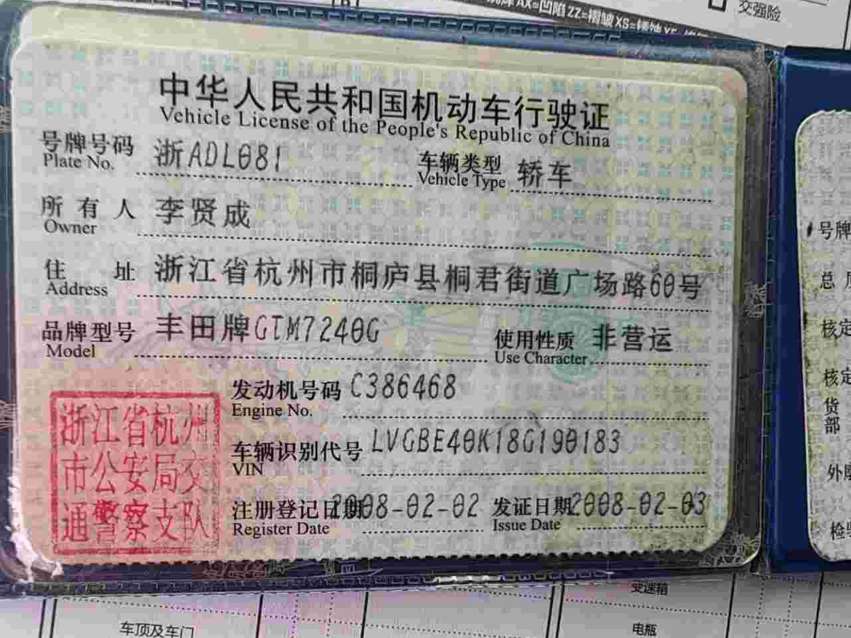 AX=凹陷 ZZ=褶皱 XS=锈蚀
交强险
中华人民共和国机动车行驶证
Vehicle License of the People's Republic of China
号牌号码 浙ADL081 车辆类型 轿车
Plate No. Vehicle Type
所有人 李贤成
Owner
住址 浙江省杭州市桐庐县桐君街道广场路60号
Address
品牌型号 丰田牌GTM7240G 使用性质 非营运
Model Use Character
发动机号码 C386468
Engine No.
车辆识别代号 LVGBE40K18G190183
VIN
注册登记日期 2008-02-02 发证日期 2008-02-03
Register Date Issue Date
浙江省杭州
市公安局交
通警察支队
号牌
总
核定
核定
货
部
检验
变速箱
车顶及车门
电瓶